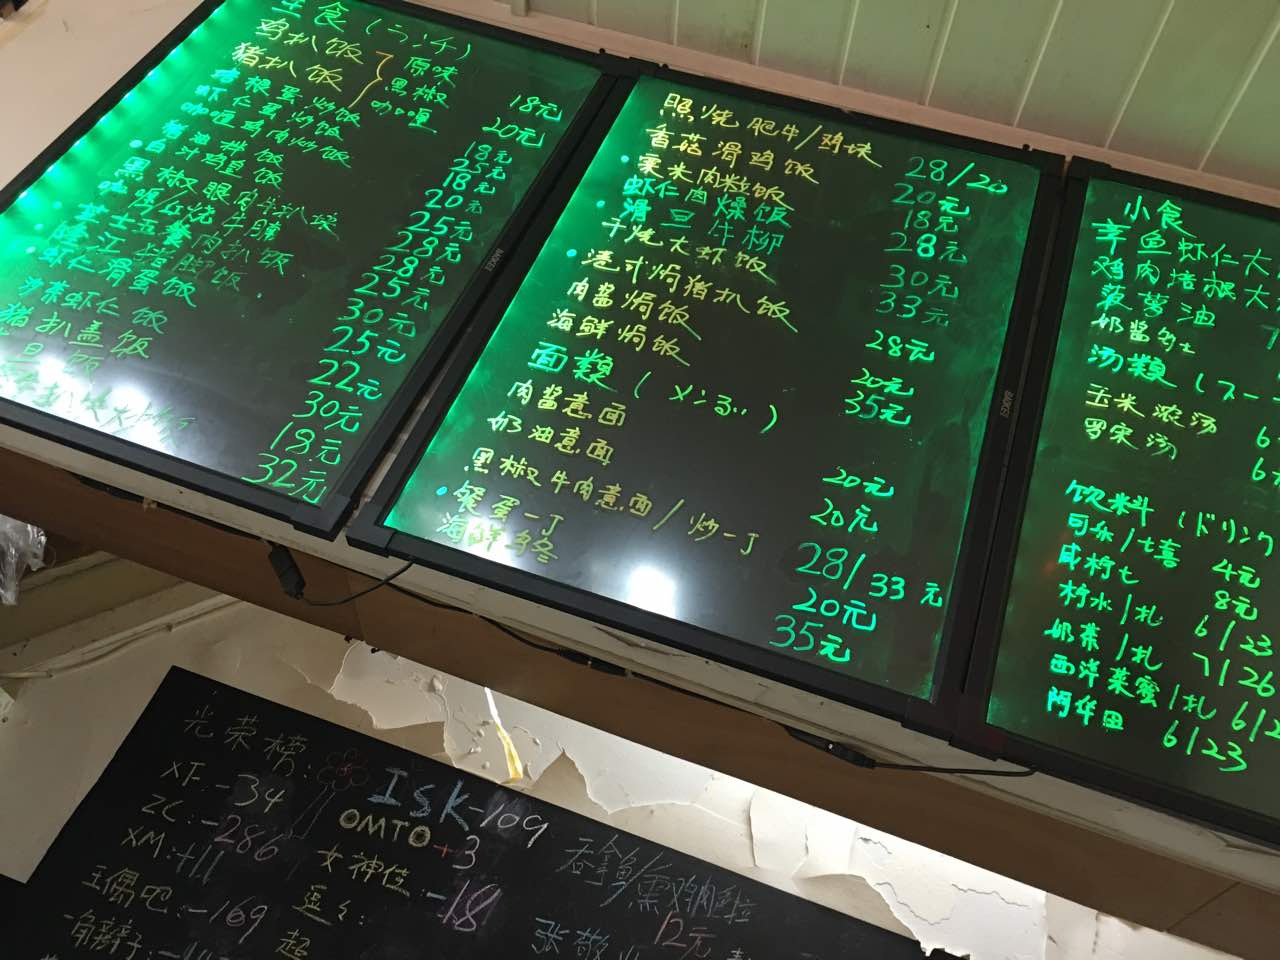 主食(ランチ)
鸡扒饭 原味 18元
猪扒饭 黑椒 20元
咖喱
培根蛋炒饭 18元
虾仁蛋炒饭 25元
咖喱鸡肉炒饭 18元
猪油拌饭 20元
豉汁鸡鱼饭 25元
黑椒眼肉牛扒块 28元
咖喱/红烧牛腩 28元
芝士五餐肉扒饭 25元
隆江猪脚饭 30元
虾仁滑蛋饭 25元
沙茶虾仁饭 22元
猪扒盖饭 30元
旦饭 18元
32元
照烧肥牛/鸡块 28/20
香菇滑鸡饭 20元
粟米肉粒饭 18元
虾仁肉燥饭 28元
滑旦牛柳 30元
干烧大虾饭 33元
港式焗猪扒饭 28元
肉酱焗饭 20元
海鲜焗饭 35元
面類(メンるい)
肉酱意面 20元
奶油意面 20元
黑椒牛肉意面/炒一丁 28/33元
餐蛋一丁 20元
海鲜乌冬 35元
小食
章鱼虾仁大
鸡肉培根大
菠萝油 7
奶酱多士
汤類(スー
玉米浓汤 6
罗宋汤 6
饮料(ドリンク
可乐/七喜 4元
咸柠七 8元
柠水/扎 6/23
奶茶/扎 7/26
西洋菜蜜/扎 6/2
阿华田 6/23
光荣榜:
XF:-34 ISK-109
ZC:-286 OMTO+3
XM:+11 女神位:-18
玉佩吧:-169 逗々:
角辫子 超
12元
张敬